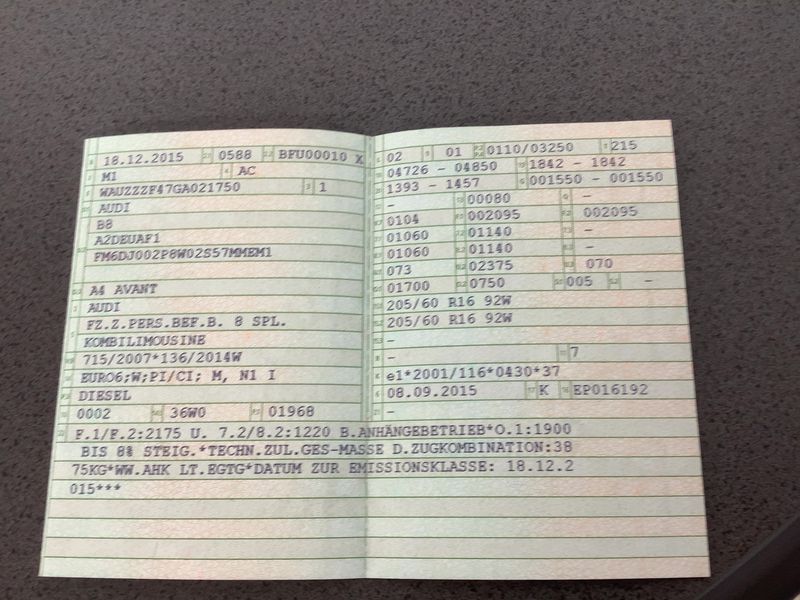 18.12.2015 0588 BFU00010 X
M1 AC
WAUZZZF47GA021750 1
AUDI
B8
A2DEUAF1
FM6DJ002P8W02S57MMEM1
A4 AVANT
AUDI
FZ.Z.PERS.BEF.B. 8 SPL.
KOMBILIMOUSINE
715/2007*136/2014W
EURO6;W;PI/CI; M, N1 I
DIESEL
0002 36W0 01968
02 01 0110/03250 215
04726 - 04850 1842 - 1842
1393 - 1457 001550 - 001550
- 00080 -
0104 002095 002095
01060 01140 -
01060 01140 -
073 02375 070
01700 0750 005 -
205/60 R16 92W
205/60 R16 92W
-
- 7
e1*2001/116*0430*37
08.09.2015 K EP016192
-
F.1/F.2:2175 U. 7.2/8.2:1220 B.ANHÄNGEBETRIEB*O.1:1900
BIS 8% STEIG.*TECHN.ZUL.GES-MASSE D.ZUGKOMBINATION:38
75KG*WW.AHK LT.EGTG*DATUM ZUR EMISSIONSKLASSE: 18.12.2
015***